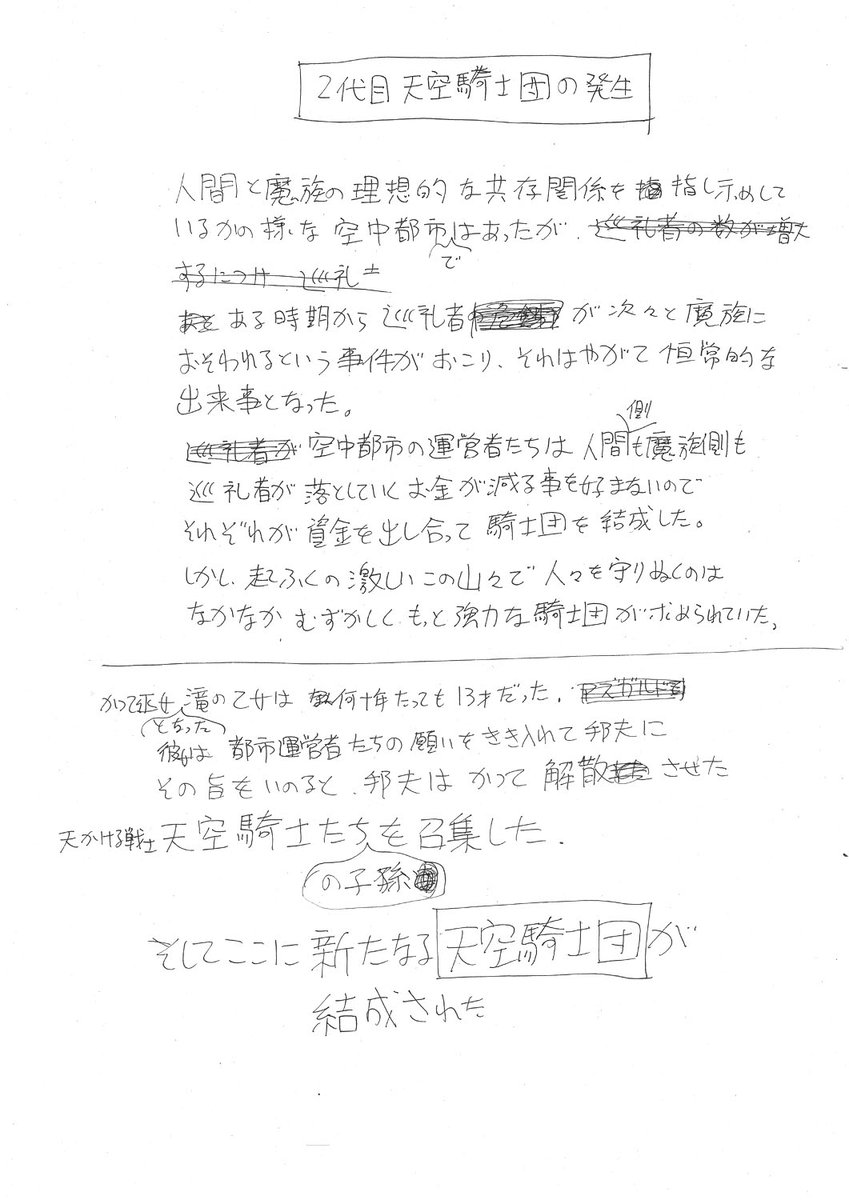 2代目 天空騎士団の発生
人間と魔族の理想的な共存関係を指し示めして
いるかの様な空中都市ではあったが、巡礼者の数が増大
するにつけ 巡礼
ある時期から巡礼者が次々と魔族に
おそわれるという事件がおこり、それはやがて恒常的な
出来事となった。
巡礼者が 空中都市の運営者たちは人間側も魔族側も
巡礼者が落としていくお金が減る事を好まないので
それぞれが資金を出し合って騎士団を結成した。
しかし、起ふくの激しいこの山々で人々を守りぬくのは
なかなかむずかしくもっと強力な騎士団が求められていた。
かつて巫女となった滝の乙女は何十年たっても13才だった。
彼女は都市運営者たちの願いをきき入れて邦夫に
その旨をいのると、邦夫はかつて解散させた
天かける戦士 天空騎士たちの子孫を召集した。
そしてここに新たなる天空騎士団が
結成された